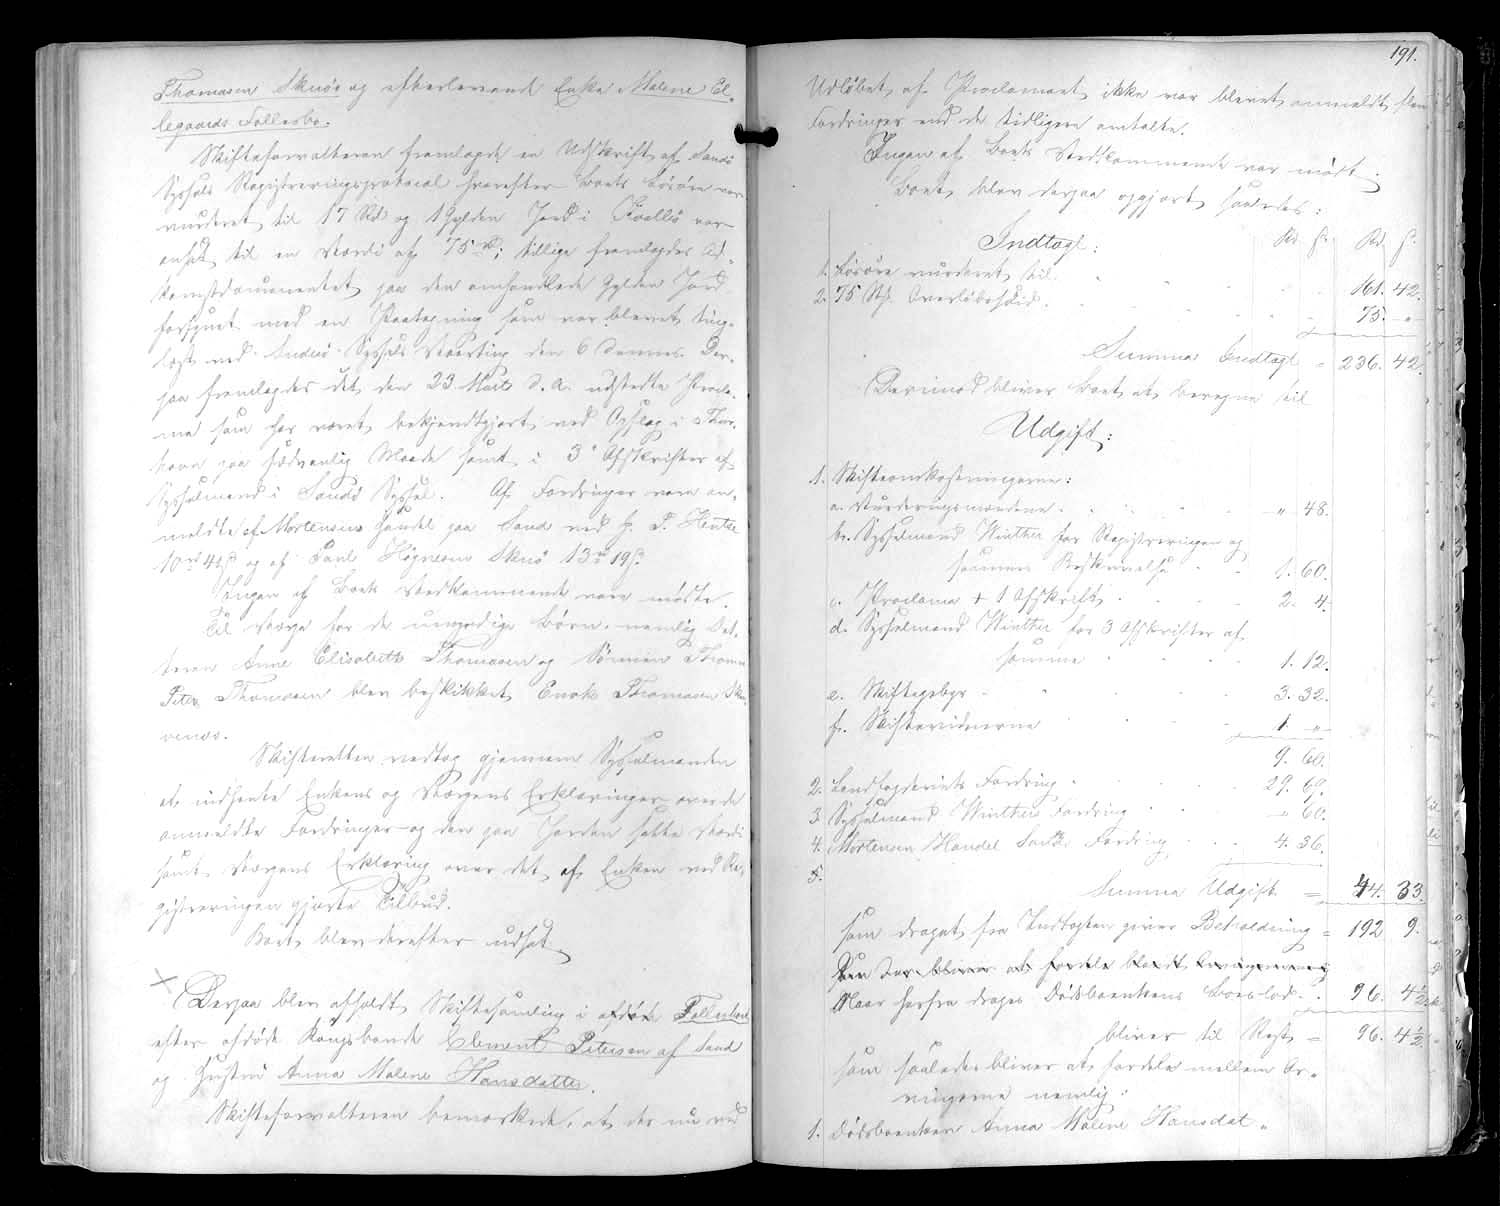 Thomasen Skuø og efterlevende Enke Malene El-
legaards Fællesbo.
Skifteforvalteren fremlagde en Udskrift af Sandø
Syssels Registreringsprotocol hvorefter Boets Løsøre var
vurderet til 17 Rd og 1 Gylden Jord i
ansat til en Værdi af 75 rd; tillige fremlagdes Ad-
komstdocumentet paa den omhandlede Gylden Jord
forsynet med en Paategning som var blevet ting-
læst ved Sandø Syssels Vaarting den 6 dennes. Der-
paa fremlagdes det den 23 Marts d. A. udstedte Procla-
ma som har været bekjendtgjort ved Opslag i Thors-
havn paa sædvanlig Maade samt i 3 Afskrifter af
Sysselmand i Sandø Syssel. Af Fordringer vare an-
meldte af Mortensens Handel paa Sand ved
og af Poul Skuø 13 19
Ingen af Boets Vedkommende vare mødte.
Til Værge for de umyndige Børn nemlig Dat-
teren Anne Elisabeth Thomasen og Sønnen Thomas
Peter Thomasen blev beskikket Enok Thomasen
Skifteretten vedtog gjennem Sysselmanden
at indhente Enkens og Værgens Erklæringer over de
anmeldte Fordringer og den paa Jorden satte Værdi
samt Værgens Erklæring over det af Enken ved Re-
gistreringen gjorte Tilbud.
Boet blev derefter udsat.
Derpaa blev afholdt Skiftesamling i afdøde Fællesboet
efter afdøde Kongsbonde Clement Petersen af Sand
og Hustru Anna Malene Hansdatter.
Skifteforvalteren bemærkede, at der nu ved
191.
Udløbet af Proclamaet ikke var blevet anmeldt flere
Fordringer end de tidligere omtalte.
Ingen af Boets Vedkommende var mødt.
Boet blev derpaa opgjort saaledes:
Indtægt: Rd. ß. Rd. ß.
1. Løsøre vurderet til 161. 42.
2. 75 75. "
Summa Indtægt = 236. 42.
Derimod bliver Boet at beregne til
Udgift:
1. Skifteomkostningerne:
a. Vurderingsmændene " 48.
b. Sysselmand Winther for Registreringen og
sammes Beskrivelse 1. 60.
c. Proclama + 1 Afskrift 2. 4.
d. Sysselmand Winther for 3 Afskrifter af
samme 1. 12.
e. Skiftegebyr 3. 32.
f. Skiftevidnerne 1 "
9. 60.
2. Landfogderiets Fordring 29. 69.
3. Sysselmand Winthers Fordring " 60.
4. Mortensen Handel Sands Fordring 4. 36.
5.
Summa Udgift = 44. 33.
som draget fra Indtægten giver Beholdning = 192 9.
Naar herfra drages Dødsboenkens Boeslod 96. 4½
bliver til Rest = 96. 4½
som saaledes bliver at fordele mellem Ar-
vingerne nemlig:
1. Dødsboenken Anna Malene Hansdat-